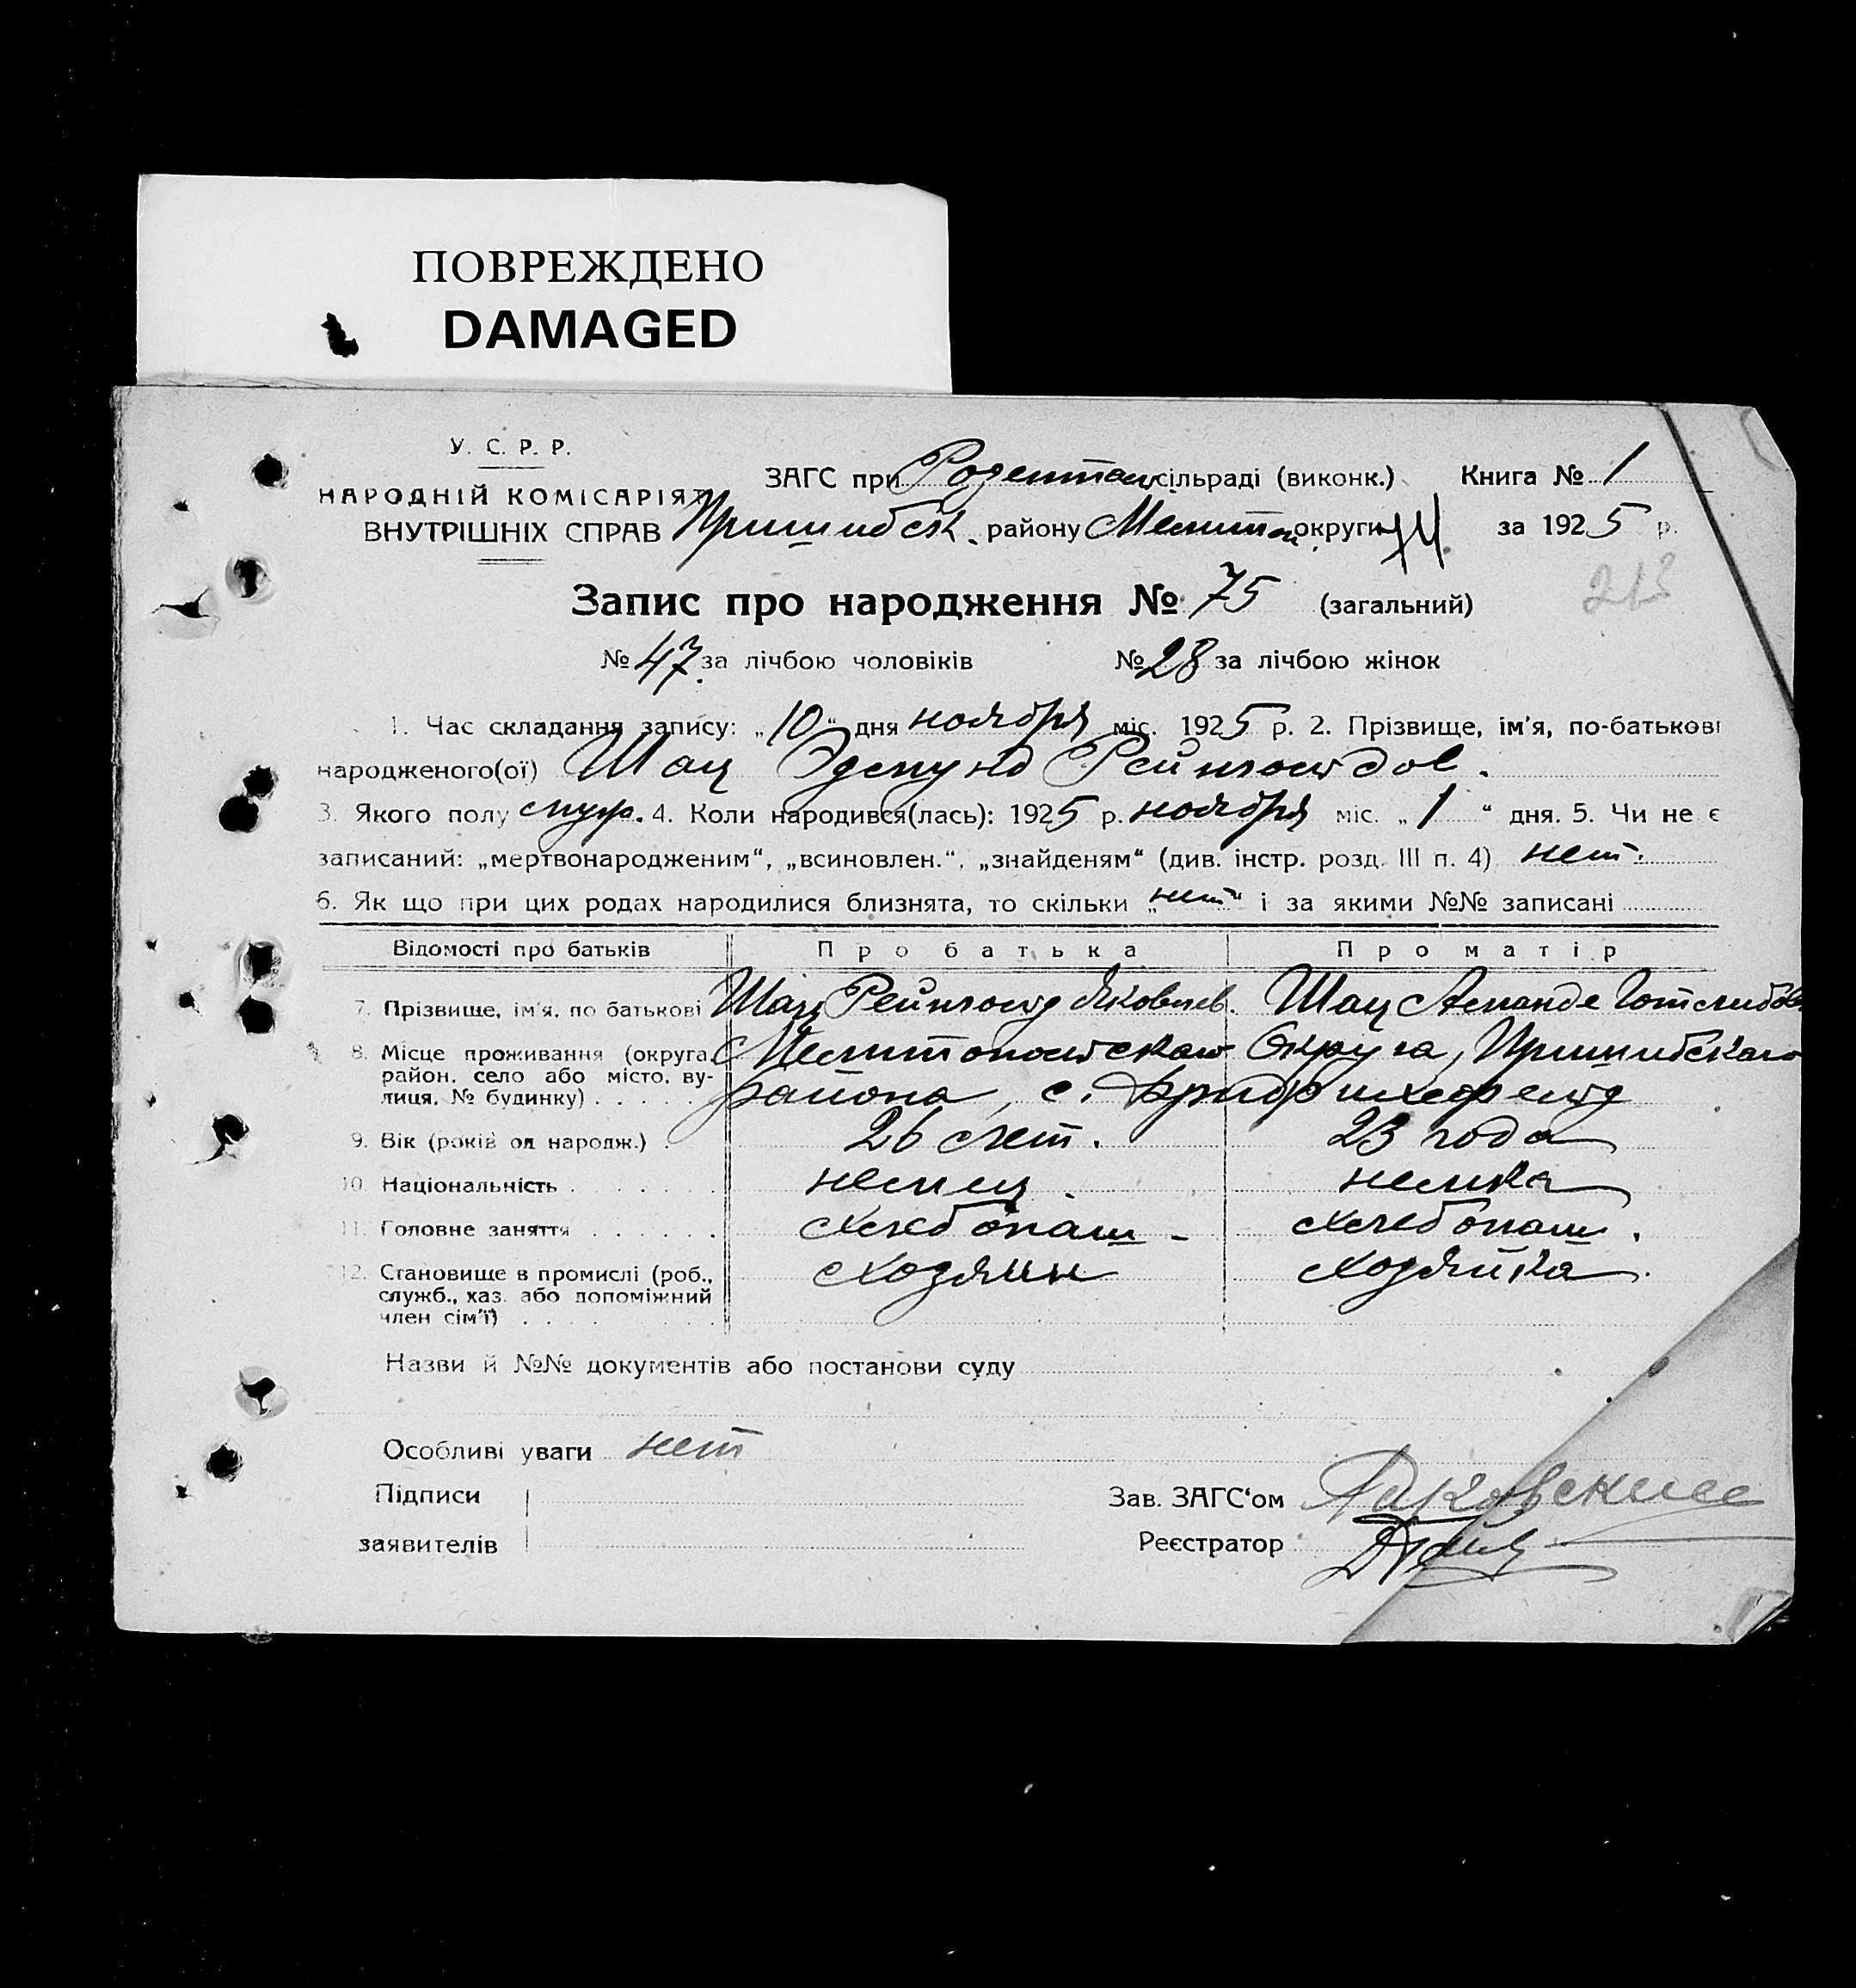 ПОВРЕЖДЕНО
DAMAGED
У. С. Р. Р.
НАРОДНІЙ КОМІСАРІЯТ
ВНУТРІШНІХ СПРАВ
ЗАГС при Розентальс. сільраді (виконк.) Книга № 1
Пришибск. району Мелитоп. округи за 1925 р.
213
Запис про народження № 75 (загальний)
№ 47 за лічбою чоловіків № 28 за лічбою жінок
1. Час складання запису: „10" дня ноября міс. 1925 р. 2. Прізвище, ім'я, по-батькові
народженого(ої) Шац Эдмунд Рейнгольдов.
3. Якого полу муж. 4. Коли народився(лась): 1925 р. ноября міс. „1" дня. 5. Чи не є
записаний: „мертвонародженим", „всиновлен.", „знайденям" (див. інстр. розд. III п. 4) нет.
6. Як що при цих родах народилися близнята, то скільки „нет" і за якими №№ записані
Відомості про батьків Про батька Про матір
7. Прізвище, ім'я, по батькові Шац Рейнгольд Яковлев. Шац Аманде Готлибов
8. Місце проживання (округа, Мелитопольской Округа, Пришибского
район, село або місто, ву-
лиця, № будинку) района, с. Фридрихсфельд
9. Вік (років од народж.) 26 лет. 23 года
10. Національність немец. немка
11. Головне заняття хлебопаш - хлебопаш.
12. Становище в промислі (роб., хозяин хозяйка.
служб., хаз. або допоміжний
член сім'ї)
Назви й №№ документів або постанови суду
Особливі уваги нет
Підписи
заявителів
Зав. ЗАГС'ом
Реєстратор